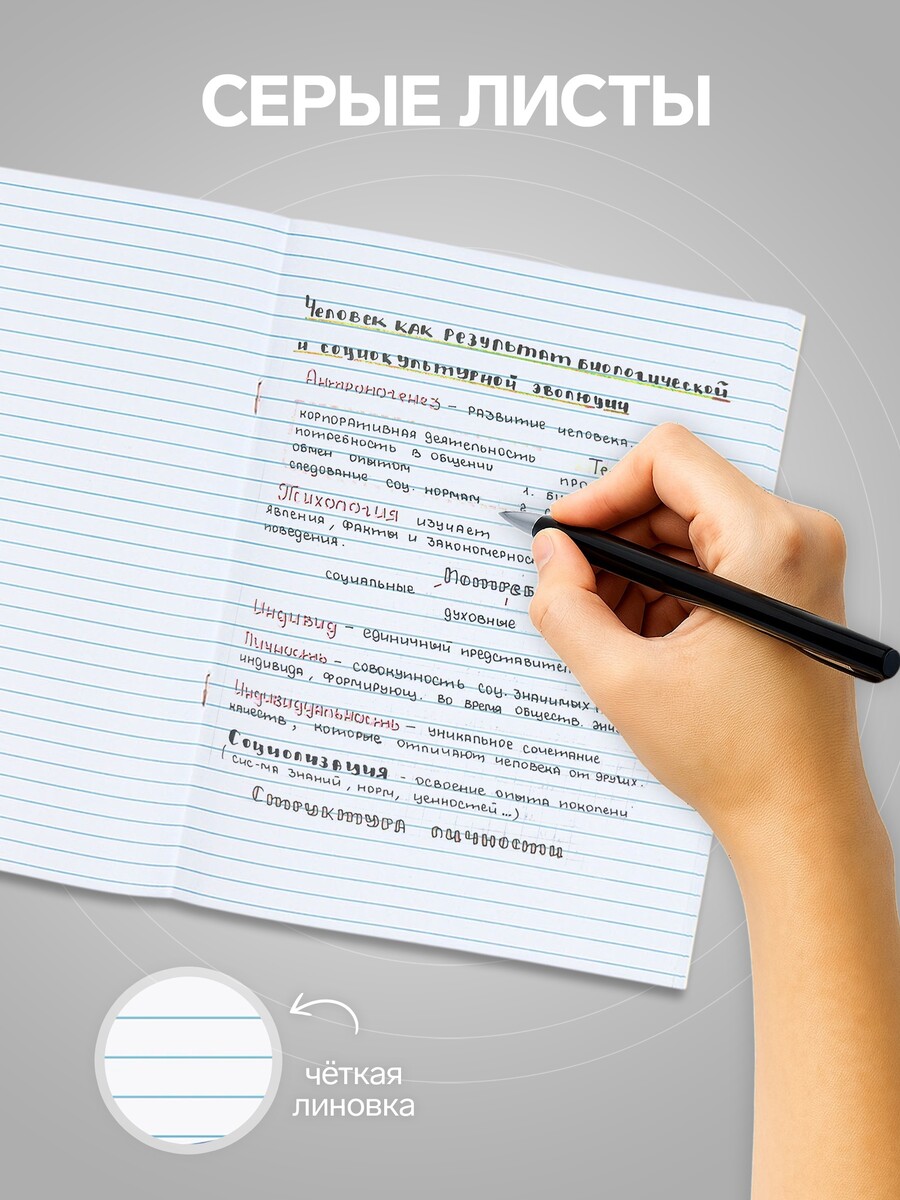 СЕРЫЕ ЛИСТЫ
Человек как результат биологической
и социокультурной эволюции
Антропогенез – развитие человека.
корпоративная деятельность
потребность в общении
обмен опытом
следование соц. нормам
Те
про
1. би
2.
Психология изучает
явления, факты и закономернос
поведения.
социальные Потреб
духовные
Индивид – единичный представител
Личность – совокупность соц. значимых
индивида, формирующ. во время обществ.
Индивидуальность – уникальное сочетание
качеств, которые отличают человека от других.
Социализация – освоение опыта поколени
(сис-ма знаний, норм, ценностей...)
Структура личности
чёткая
линовка